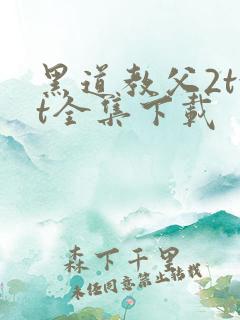 黑道教父2tx
t全集下载
森下千里
未经同意禁止转载